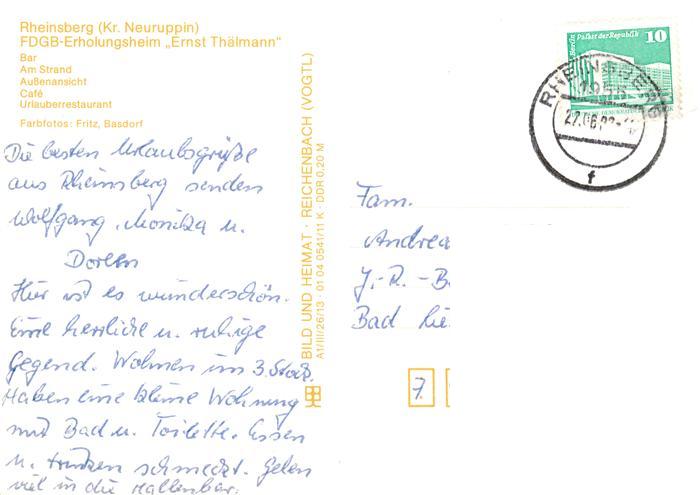 Rheinsberg (Kr. Neuruppin)
FDGB-Erholungsheim „Ernst Thälmann“
Bar
Am Strand
Außenansicht
Café
Urlauberrestaurant
Farbfotos: Fritz, Basdorf
Die besten Urlaubsgrüße
aus Rheinsberg senden
Wolfgang, Monika u.
Doreen
Hier ist es wunderschön.
Eine herrliche u. ruhige
Gegend. Wohnen im 3. Stock.
Haben eine kleine Wohnung
mit Bad u. Toilette. Essen
u. trinken schmeckt. Gehen
viel in die Hallenbar.
BILD UND HEIMAT · REICHENBACH (VOGTL)
A1/III/26/13 · 01 04 0541/11 K · DDR 0,20 M
Berlin Palast der Republik 10
RHEINSBERG
1955
f
Fam.
Andrea
J.-R.-B
Bad
7